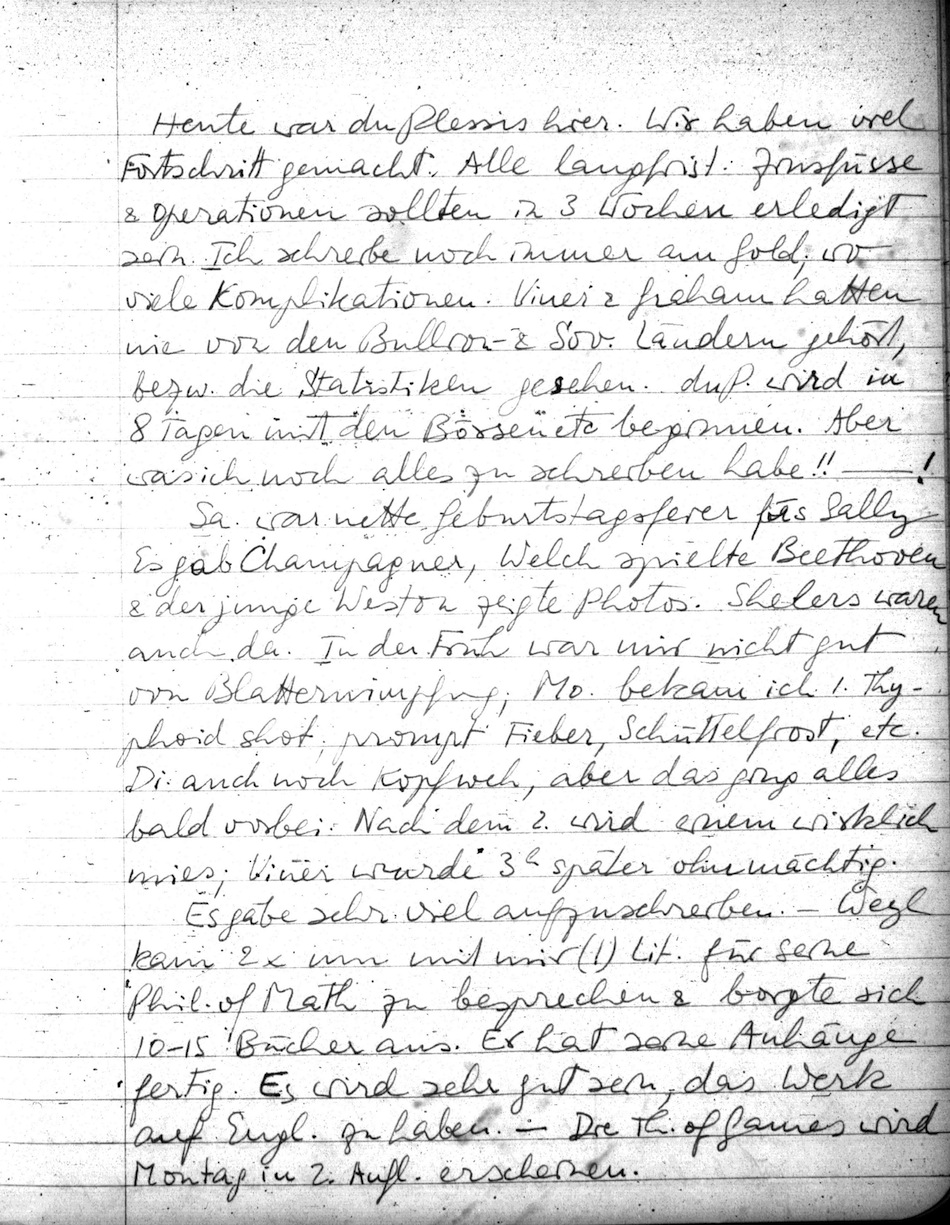 Heute war du Plessis hier. Wir haben viel
Fortschritt gemacht. Alle langfrist. Zinsfüsse
& Operationen sollten in 3 Wochen erledigt
sein. Ich schreibe noch immer am Gold, wo
viele Komplikationen. Viner & Graham hatten
nie von den Bullion- & Sov. Ländern gehört,
bezw. die Statistiken gesehen. duP. wird in
8 Tagen mit den Börsen etc beginnen. Aber
was ich noch alles zu schreiben habe!! — !
Sa. war nette Geburtstagsfeier für Sally
Es gab Champagner, Welch spielte Beethoven
& der junge Weston zeigte Photos. Shelers waren
auch da. In der Früh war mir nicht gut
von Blatternimpfung; Mo. bekam ich 1. Thy-
phoid shot; prompt Fieber, Schüttelfrost, etc.
Di. auch noch Kopfweh, aber das ging alles
bald vorbei. Nach dem 2. wird einem wirklich
mies; Viner wurde 3h später ohnmächtig.
Es gäbe sehr viel aufzuschreiben. – Weyl
kam 2x um mit mir (!) Lit. für seine
Phil. of Math zu besprechen & borgte sich
10-15 Bücher aus. Er hat seine Anhänge
fertig. Es wird sehr gut sein, das Werk
auf Engl. zu haben. – Die Th. of Games wird
Montag in 2. Aufl. erscheinen.